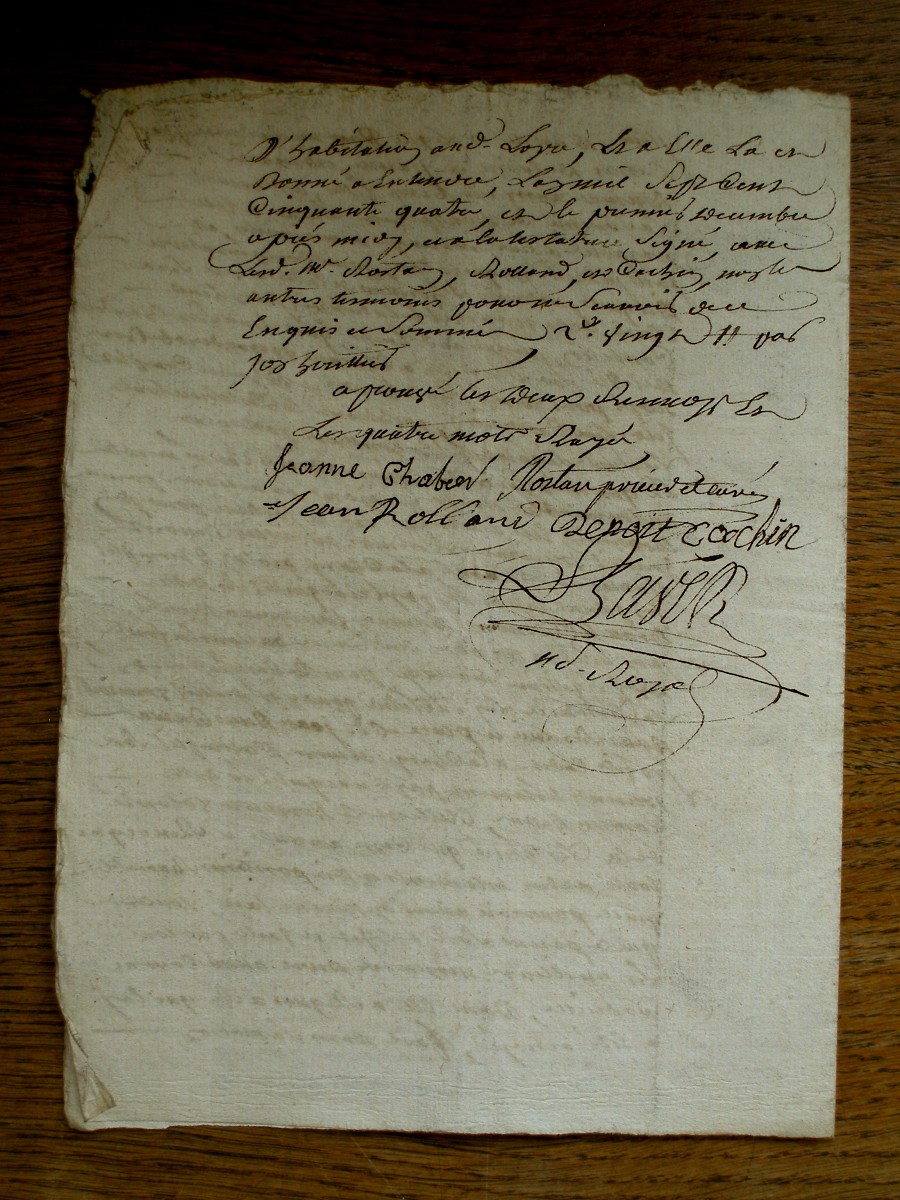 D'habitation aud. Loyr, Et a Elle La et
donné a Entendre, Lan mil Sept Cent
Cinquante quatre, et le premier decembre
apres midy, et a la testatrice Signé, avec
Led. Mr. Rostan, Rolland, et Cochin, non les
autres temoins pour ne Scavoir de ce
Enquis et Sommé vingt pas
aprouvé les deux Renvoys Et
Les quatre mots Rayé
Jeanne Chabert Rostan prieur et curé
Jean Rolland Benoit Cochin
nd. Roya